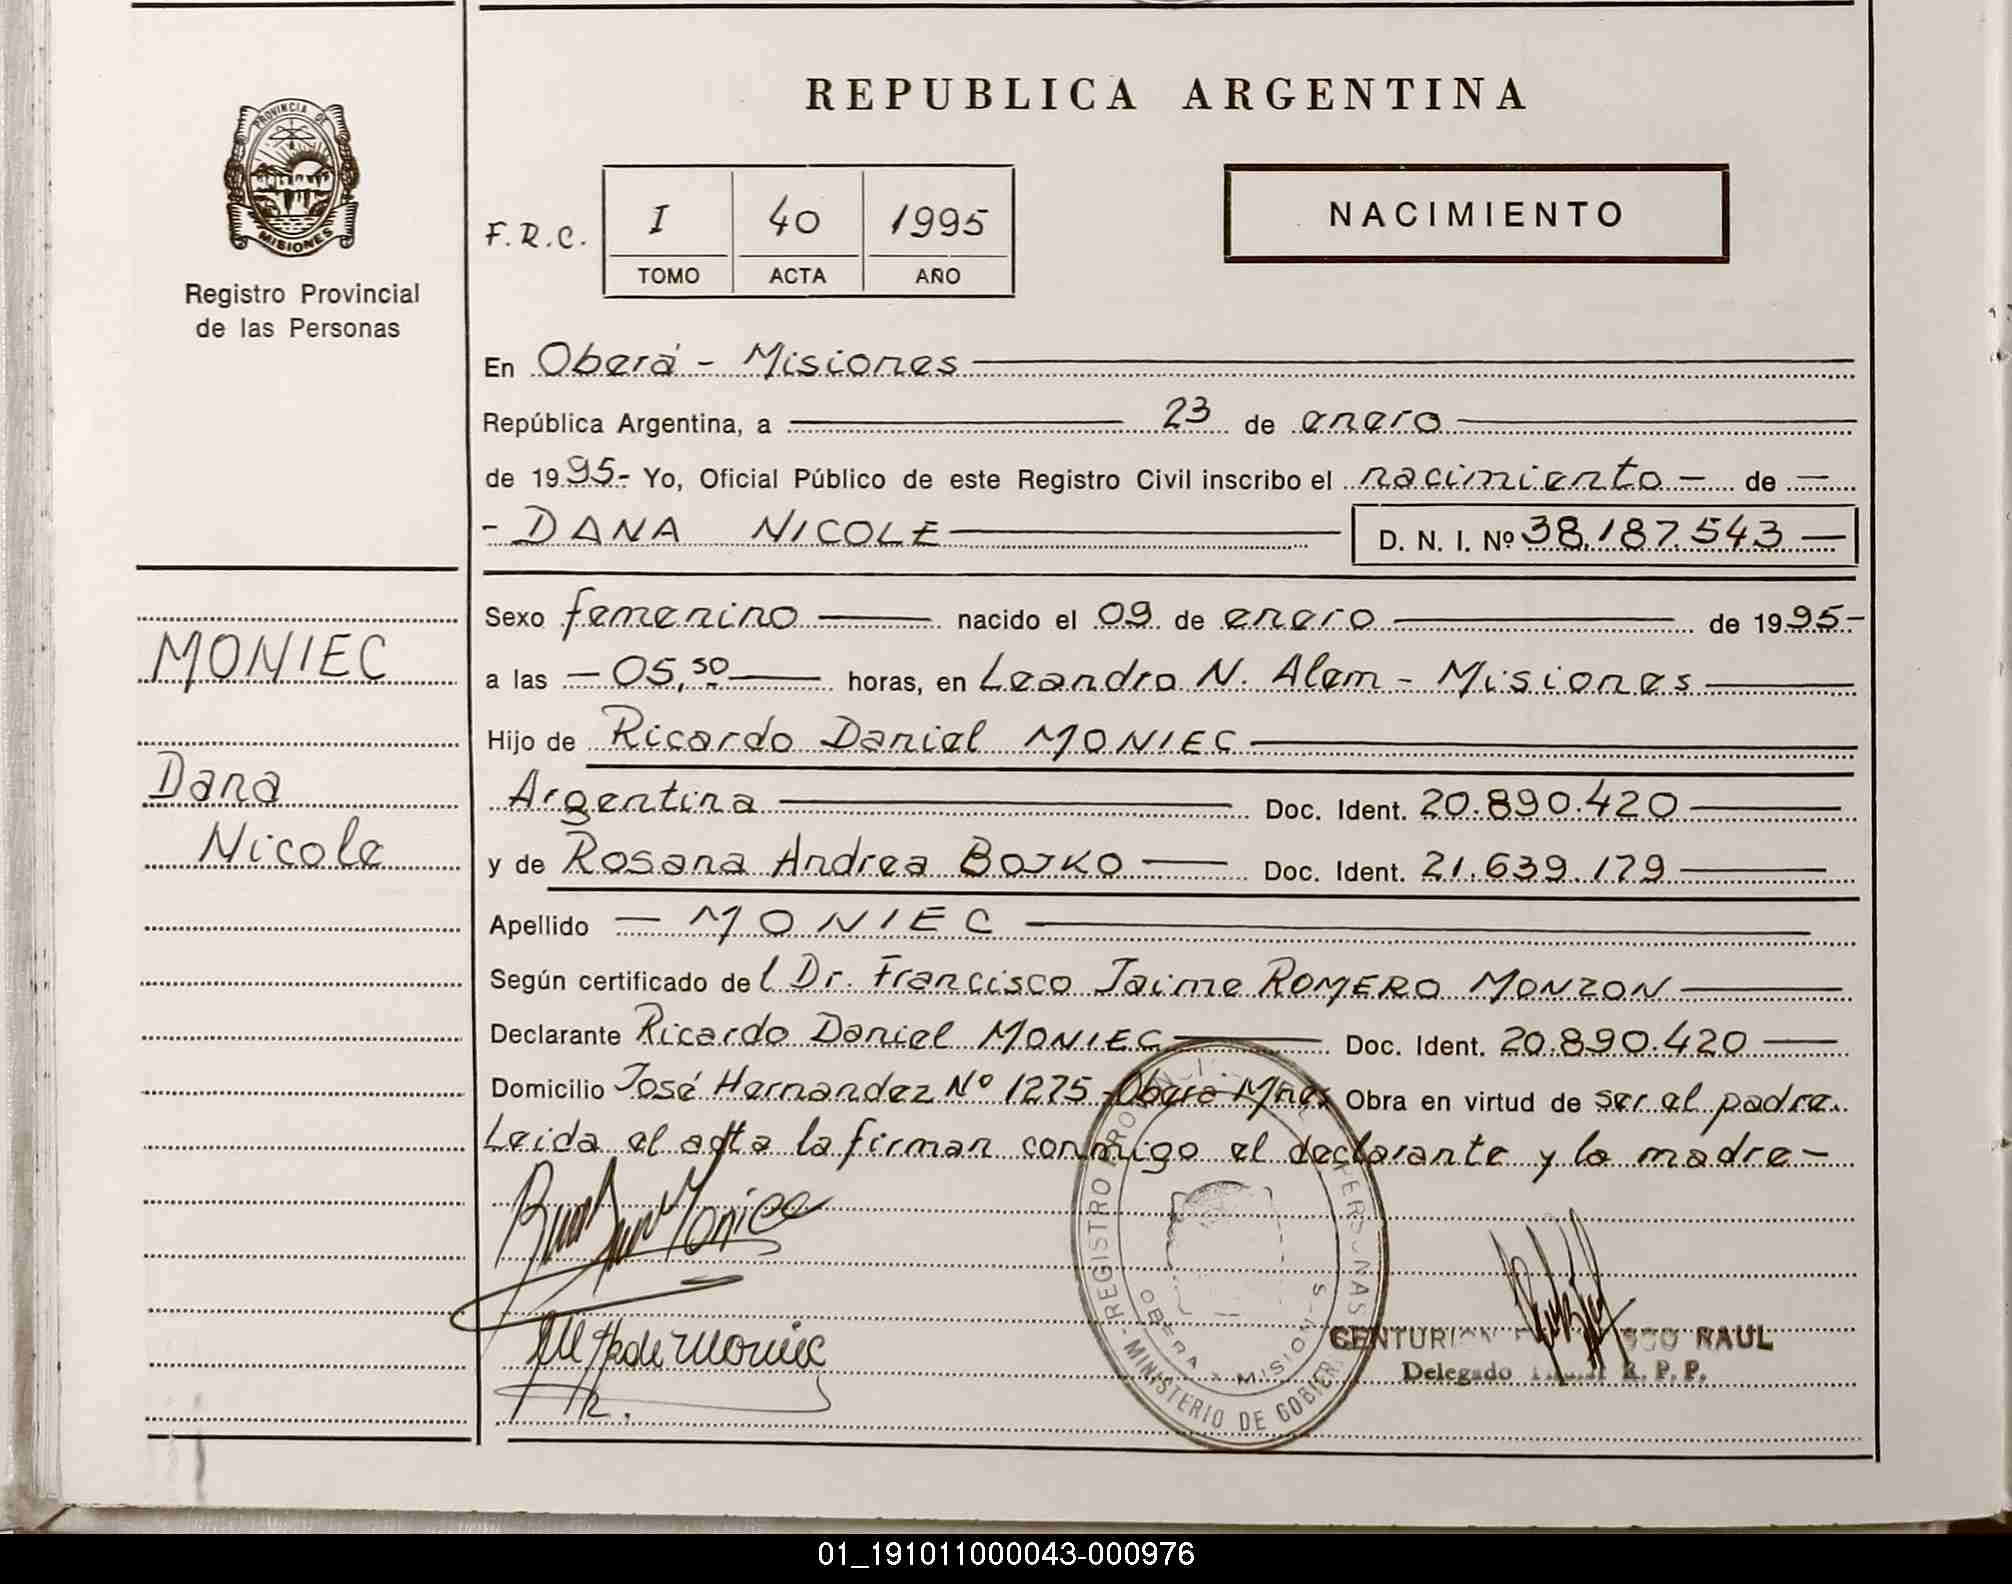 REPUBLICA ARGENTINA
PROVINCIA DE
MISIONES
Registro Provincial
de las Personas
F.R.C. I 40 1995
TOMO ACTA AÑO
NACIMIENTO
En Oberá - Misiones
República Argentina, a 23 de enero
de 1995- Yo, Oficial Público de este Registro Civil inscribo el nacimiento - de -
- DANA NICOLE D. N. I. Nº 38.187.543 -
MONIEC
Dana
Nicole
Sexo femenino nacido el 09 de enero de 1995-
a las - 05,50 horas, en Leandro N. Alem - Misiones
Hijo de Ricardo Daniel MONIEC
Argentina Doc. Ident. 20.890.420
y de Rosana Andrea BOJKO Doc. Ident. 21.639.179
Apellido - MONIEC
Según certificado del Dr. Francisco Jaime ROMERO MONZON
Declarante Ricardo Daniel MONIEC Doc. Ident. 20.890.420
Domicilio José Hernandez Nº 1275 - Obera Mnes Obra en virtud de ser el padre.
Leida el acta la firman conmigo el declarante y la madre -
REGISTRO PERSONAS
OBERA MISIONES
- MINISTERIO DE GOBIER
CENTURION RAUL
Delegado R. P. P.
01_191011000043-000976